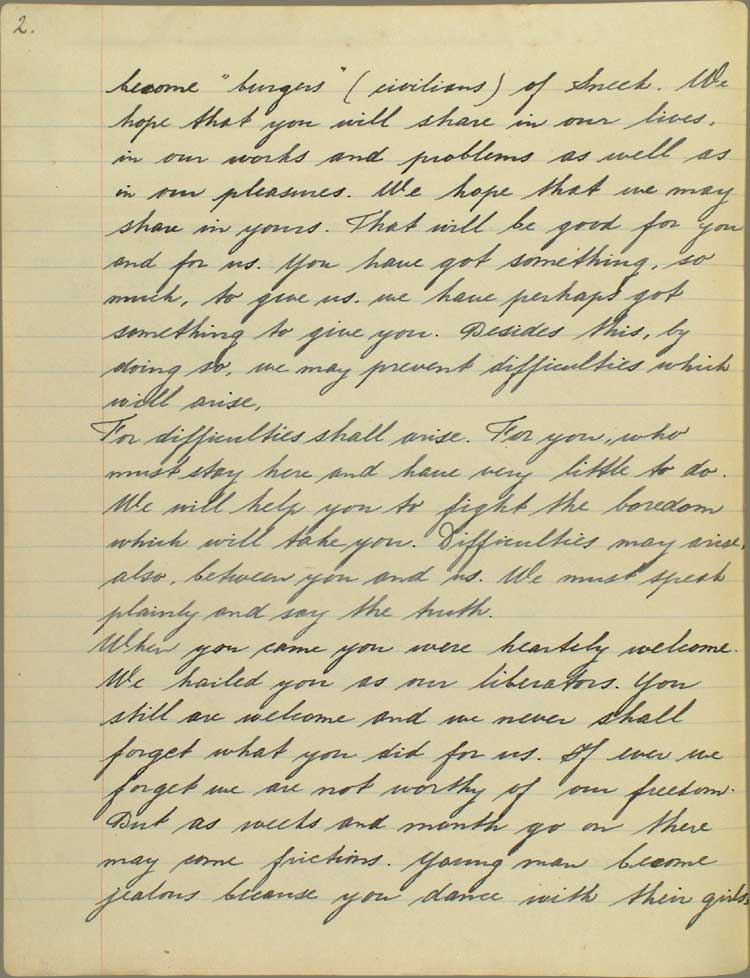 2.
become "burgers" (civilians) of Sneek. We
hope that you will share in our lives,
in our works and problems as well as
in our pleasures. We hope that we may
share in yours. That will be good for you
and for us. You have got something, so
much, to give us, we have perhaps got
something to give you. Besides this, by
doing so, we may prevent difficulties which
will arise.
For difficulties shall arise. For you, who
must stay here and have very little to do.
We will help you to fight the boredom
which will take you. Difficulties may arise,
also, between you and us. We must speak
plainly and say the truth.
When you came you were heartely welcome.
We hailed you as our liberators. You
still are welcome and we never shall
forget what you did for us. If ever we
forget we are not worthy of our freedom.
But as weeks and month go on there
may come frictions. Young man become
jealous because you dance with their girls,